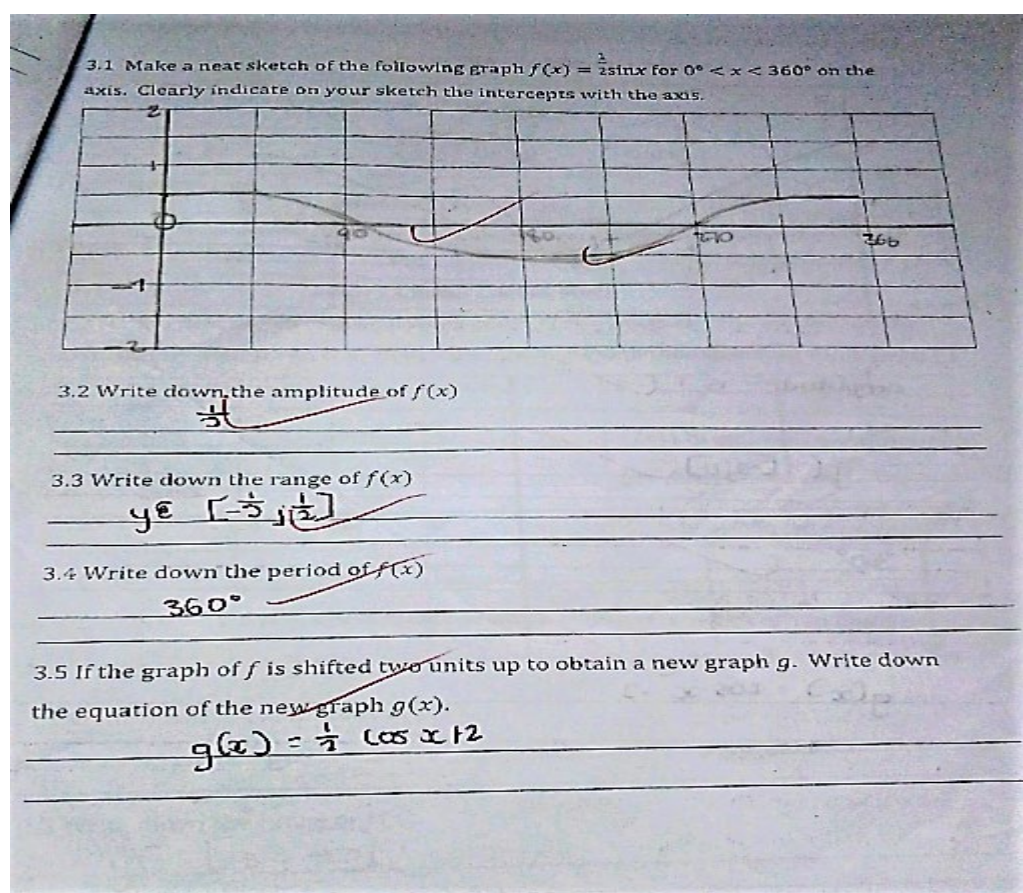 3.1 Make a neat sketch of the following graph f(x) = ½sinx for 0° < x < 360° on the
axis. Clearly indicate on your sketch the intercepts with the axis.
2
1
0
90 180 270 360
-1
-2
3.2 Write down the amplitude of f(x)
½
3.3 Write down the range of f(x)
y∈ [-½ ; ½]
3.4 Write down the period of f(x)
360°
3.5 If the graph of f is shifted two units up to obtain a new graph g. Write down
the equation of the new graph g(x).
g(x) = ½ cos x+2